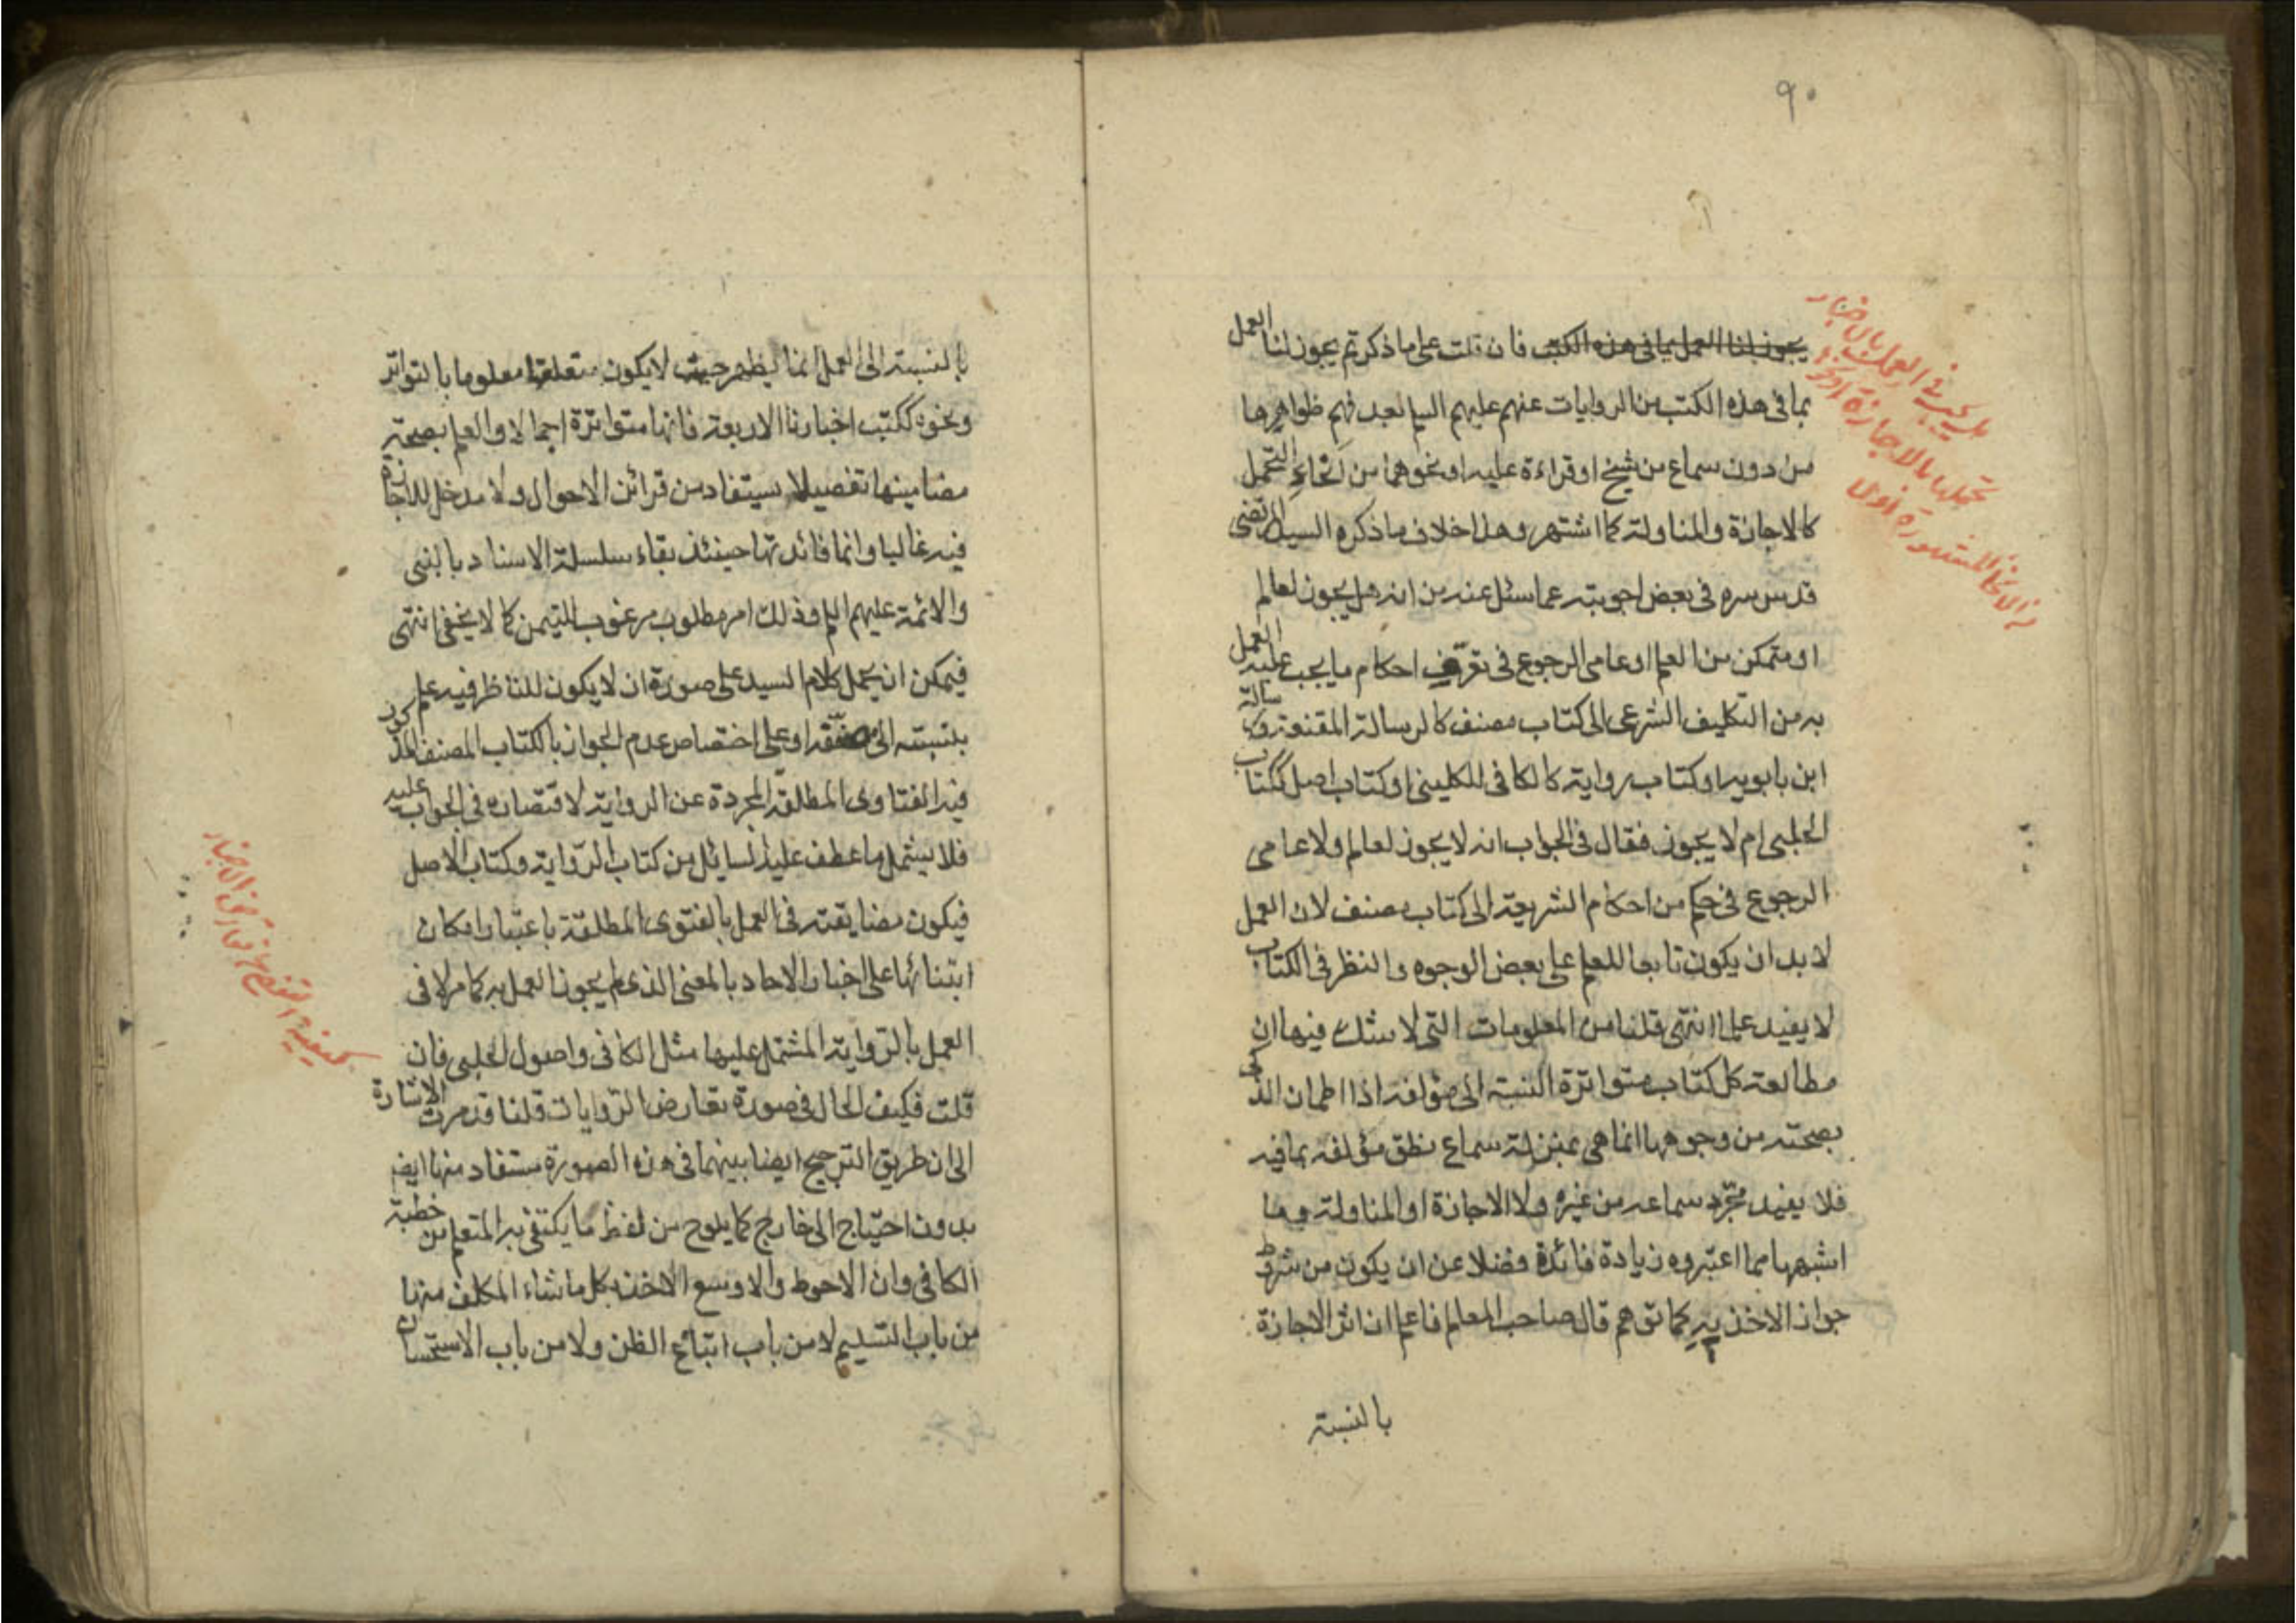 ٩٠
يجوز لنا العمل بما فى هذه الكتب فان قلت على ما ذكرتم يجوز لنا العمل
بما فى هذه الكتب من الروايات عنهم عليهم السلم بعد فهم ظواهرها
من دون سماع من شيخ او قراءة عليه او نحوهما من انحاء التحمل
كالاجازة والمناولة كما اشتهر وهذا خلاف ما ذكره السيد المرتضى
قدس سره فى بعض اجوبته عما سئل عنه من انه هل يجوز لعالم
او متمكن من العلم او عامى الرجوع فى تعرف احكام ما يجب عليه العمل
به من التكليف الشرعى الى كتاب مصنف كالرسالة المقنعة ورسالة
ابن بابويه او كتاب رواية كالكافى للكلينى او كتاب اصل ككتاب
الحلبى ام لا يجوز فقال فى الجواب انه لا يجوز لعالم ولا عامى
الرجوع فى حكم من احكام الشريعة الى كتاب مصنف لان العمل
لا بد ان يكون تابعا للعلم على بعض الوجوه والنظر فى الكتاب
لا يفيد علما انتهى قلنا من المعلومات التى لا شك فيها ان
مطالعة كل كتاب متواترة النسبة الى مؤلفه اذا اطمان الذكى
بصحته من وجوهها انما هى بمنزلة سماع نطق مؤلفه بما فيه
فلا يفيد مجرد سماعه من غيره ولا الاجازة او المناولة وما
اشبهها مما اعتبروه زيادة فائدة فضلا عن ان يكون من شروط
جواز الاخذ به كما توهم قال صاحب المعالم فاعلم ان اثر الاجازة
بالنسبة
هل يجب فى العمل بالاخبار
تحملها بالاجازة او
الانحاء المشهورة ام لا
بالنسبة الى العمل انما يظهر حيث لا يكون متعلقها معلوما بالتواتر
ونحوه ككتب اخبارنا الاربعة فانها متواترة اجمالا والعلم بصحة
مضامينها تفصيلا يستفاد من قرائن الاحوال ولا مدخل للاجازة
فيه غالبا وانما فائدتها حينئذ بقاء سلسلة الاسناد بالنبى
والائمة عليهم السلم وذلك امر مطلوب مرغوب للتيمن كما لا يخفى انتهى
فيمكن ان يحمل كلام السيد على صورة ان لا يكون للناظر فيه علم
بنسبته الى مصنفه او على اختصاص عدم الجواز بالكتاب المصنف المذكور
فيه الفتاوى المطلقة المجردة عن الرواية لاقتصاره فى الجواب عليه
فلا يشمل ما عطف عليه السايل من كتاب الرواية وكتاب الاصل
فيكون مضايقته فى العمل بالفتوى المطلقة باعتبار امكان
ابتنائها على اخبار الاحاد بالمعنى الذى لم يجوز العمل به كما مر لا فى
العمل بالرواية المشتمل عليها مثل الكافى واصول الحلبى فان
قلت فكيف الحال فى صورة تعارض الروايات قلنا قد مرت الاشارة
الى ان طريق الترجيح ايضا بينهما فى هذه الصورة مستفاد منها ايضا
بدون احتياج الى خارج كما يلوح من لفظ ما يكتفى به المتعلم من خطبة
الكافى وان الاحوط والاوسع الاخذ بكل ما شاء المكلف منها
من باب التسليم لا من باب اتباع الظن ولا من باب الاستحسان
كيفية التفصى عن تعارض الاخبار